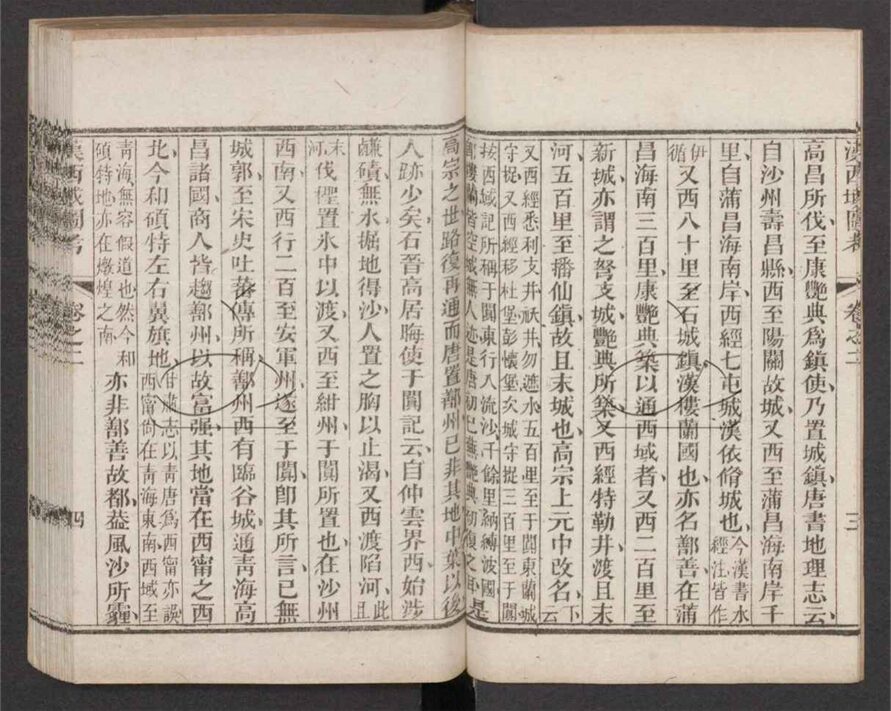 漢西域圖考 卷之二 三
高昌所伐至康艷典爲鎮使乃置城鎮唐書地理志云
自沙州壽昌縣西至陽關故城又西至蒲昌海南岸千
里自蒲昌海南岸西經七屯城漢依脩城也今漢書水
經注皆作
伊
循又西八十里至石城鎮漢樓蘭國也亦名鄯善在蒲
昌海南三百里康艷典築以通西域者又西二百里至
新城亦謂之弩支城艷典所築又西經特勒井渡且末
河五百里至播仙鎮故且末城也高宗上元中改名下
云
又西經悉利支井祆井勿遮水五百里至于闐東蘭城
守捉又西經移杜堡彭懷堡
城守捉三百里至于闐
按西域記所稱于闐東行入流沙千餘里納縛波國
樓蘭皆空城無人
是唐初已
艷典
復之
是
高宗之世路復再通而唐置鄯州已非其地中葉以後
人跡少矣石晉高居誨使于闐記云自仲雲界西始涉
鹻磧無水掘地得沙人置之胸以止渴又西渡陷河此
且
末
河伐檉置氷中以渡又西至紺州于闐所置也在沙州
西南又西行二百至安軍州遂至于闐卽其所言已無
城郭至宋史吐蕃傳所稱鄯州西有臨谷城通青海高
昌諸國商人皆趨鄯州以故富强其地當在西甯之西
北今和碩特左右翼旗地甘肅志以青唐爲西甯亦誤
西甯尙在青海東南西域至
青海無容假道也然今和
碩特地亦在燉煌之南亦非鄯善故都葢風沙所霾
漢西域圖考 卷之二 四